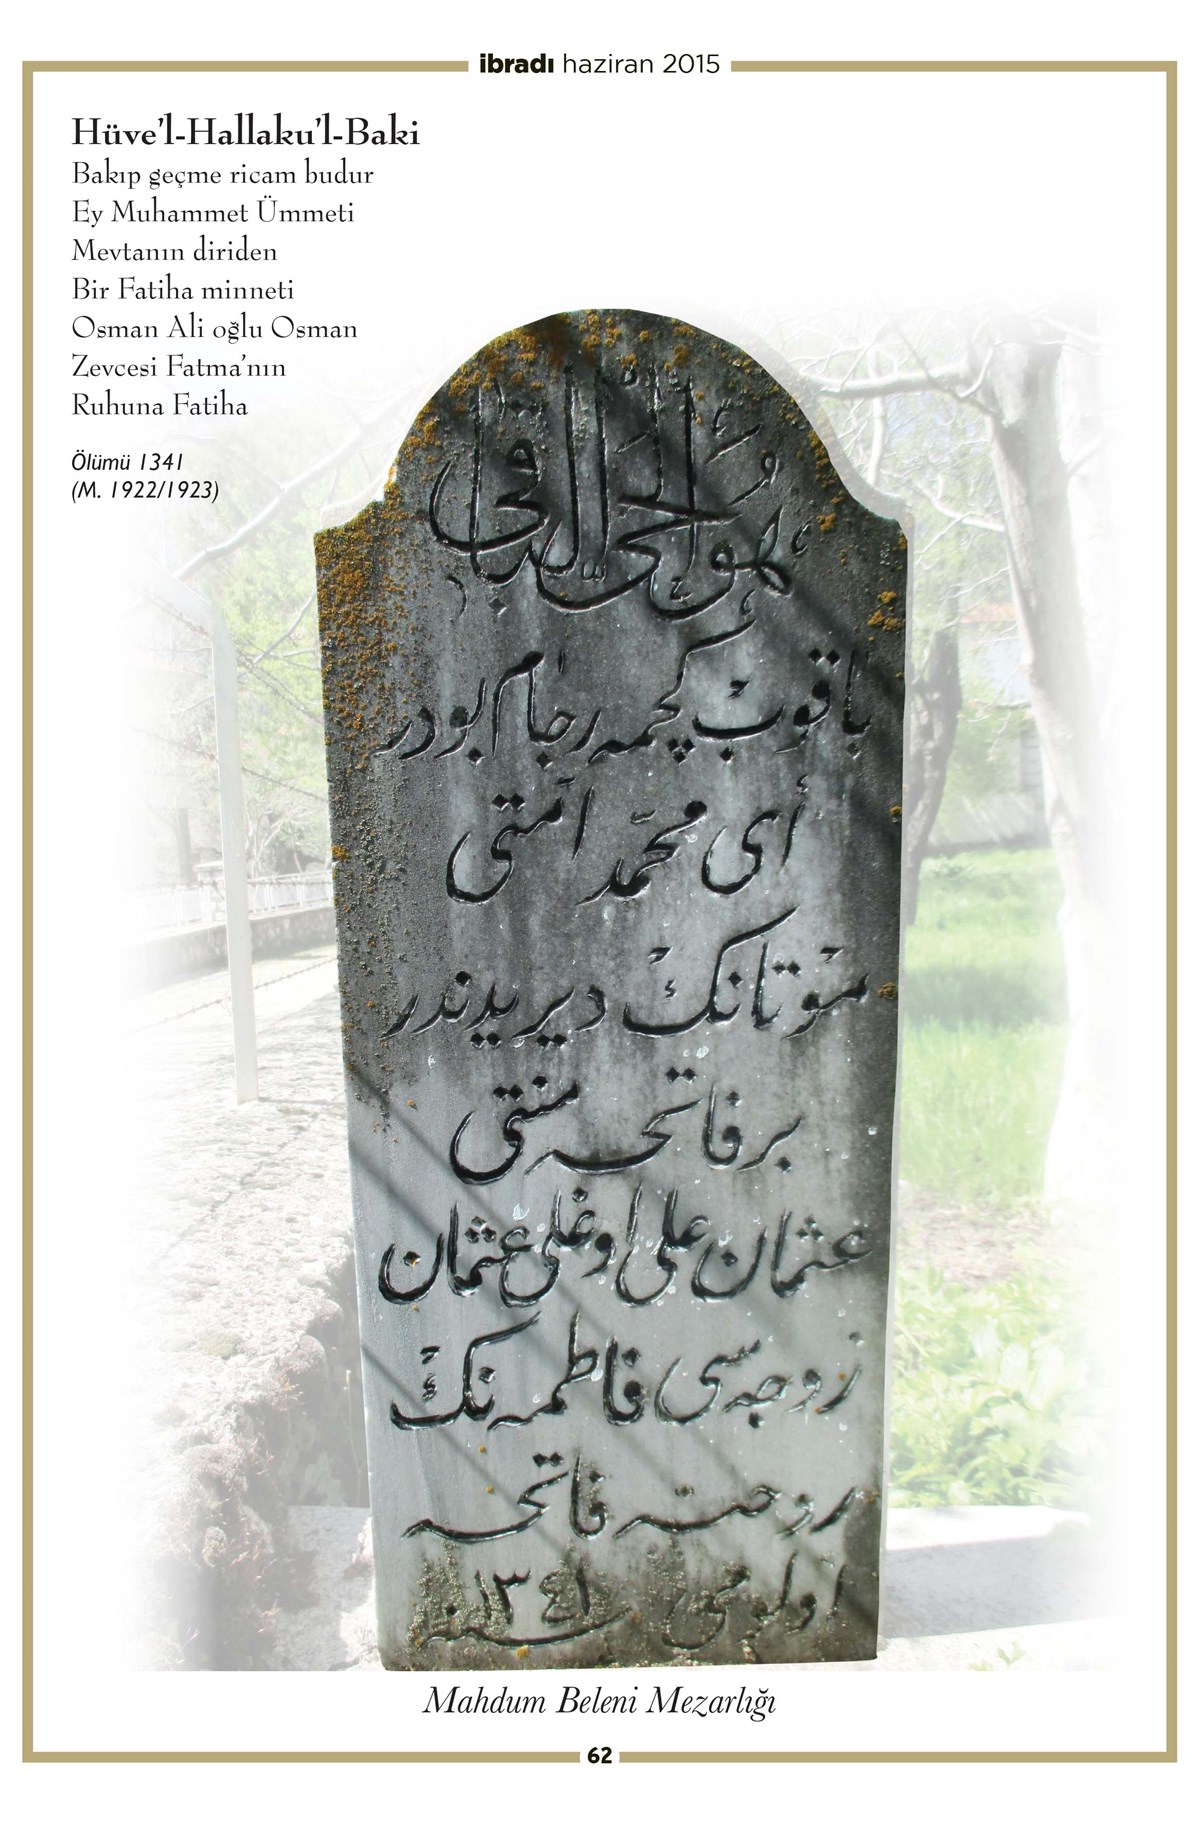 ibradı haziran 2015
Hüve'l-Hallaku'l-Baki
Bakıp geçme ricam budur
Ey Muhammet Ümmeti
Mevtanın diriden
Bir Fatiha minneti
Osman Ali oğlu Osman
Zevcesi Fatma'nın
Ruhuna Fatiha
Ölümü 1341
(M. 1922/1923)
هو الحی الباقی
باقوب كچمه رجام بودر
أی محمّد امّتی
موتانك دیریدندر
بر فاتحه منتی
عثمان علی اوغلی عثمان
زوجه سی فاطمه نك
روحنه فاتحه
اولومی سنه ١٣٤١
Mahdum Beleni Mezarlığı
62